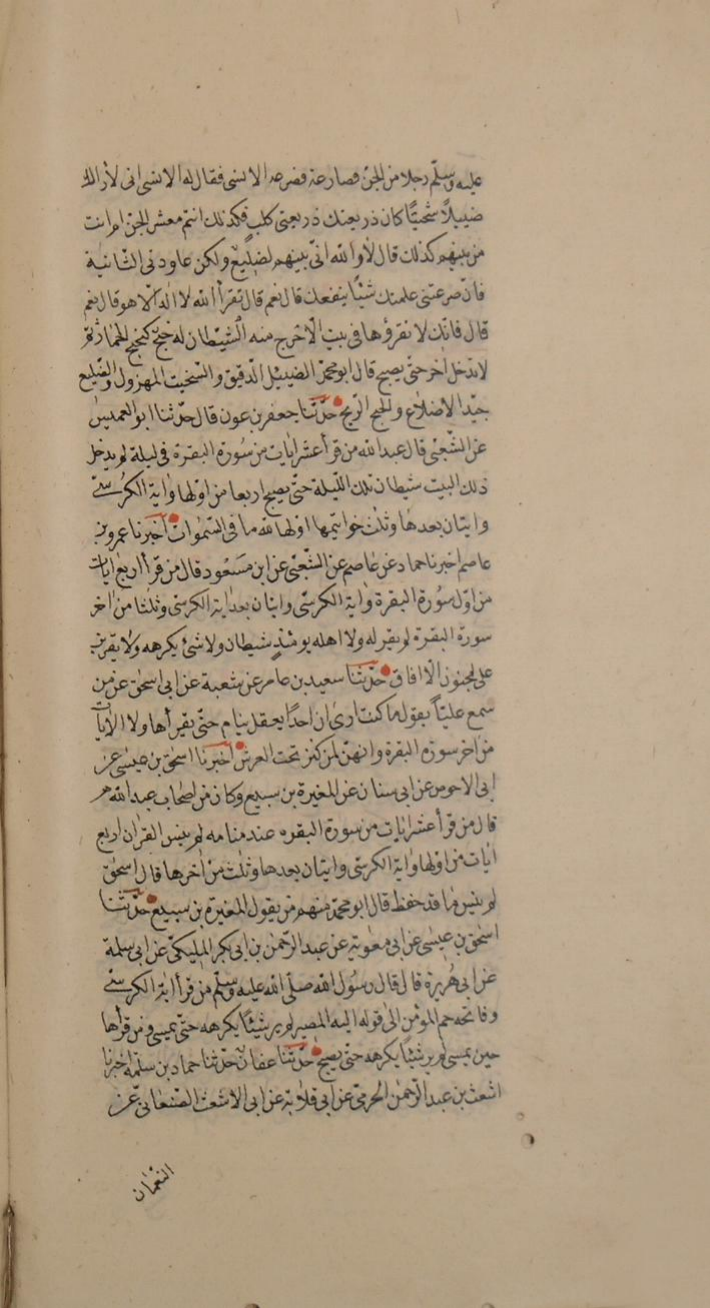 عليه وسلّم رجلا من الجنّ فصارعه فصرعه الانسى فقال له الانسى انى لأراك
ضئيلًا شخيتًا كان ذريعتك ذريعتى كلب فكذلك انتم معشر الجنّ ام انت
من بينهم كذلك قال لا والله انّى بينهم لضليع ولكن عاودنى الثّانية
فان صرعتنى علمتك شيئًا ينفعك قال نعم قال تقرأ الله لا اله الّا هو قال نعم
قال فانّك لا تقرؤها فى بيت الّا خرج منه الشّيطان له خبج كخبج الحمار ثمّ
لا يدخل اخر حتّى يصبح قال ابو محمّد الضئيل الدّقيق والشّخيت المهزول والضّليع
جيّد الاضلاع والخبج الرّيح حدّثنا جعفر بن عون قال حدّثنا ابو العميس
عن الشّعبىّ قال عبد الله من قرأ عشر ايات من سُورة البقرة فى ليلة لم يدخل
ذلك البيت شيطان تلك اللّيلة حتّى يصبح اربعا من اوّلها واية الكرسىّ
وايتان بعدها وثلث خواتيمها اوّلها لله ما فى السّموات اخبرنا عمرو بن
عاصم اخبرنا حماد عن عاصم عن الشّعبىّ عن ابن مسعود قال من قرأ اربع ايات
من اوّل سُورة البقرة واية الكرسىّ وايتان بعد اية الكرسىّ وثلثا من اخر
سورة البقرة لم يقربه ولا اهله يومئذٍ شيطان ولا شئ يكرهه ولا يقرءن
على مجنون الّا افاق حدّثنا سعيد بن عامر عن شعبة عن ابى اسحق عن من
سمع عليّاً يقول ما كنت ارى ان احدًا يعقل ينام حتّى يقرأ هاولاء الايات
من اخر سورة البقرة وانهنّ لمن كنز تحت العرش اخبرنا اسحق بن عيسى عن
ابى الاحوص عن ابى سنان عن المغيرة بن سبيع وكان من اصحاب عبد الله
قال من قرأ عشر ايات من سورة البقره عند منامه لم ينس القران اربع
ايات من اوّلها واية الكرسىّ وايتان بعدها وثلث من اخرها قال اسحق
لم ينس ما قد حفظ قال ابو محمّد منهم من يقول المغيرة بن سبيع حدّثنا
اسحق بن عيسى عن ابى معوية عن عبد الرّحمن بن ابى بكر المليكىّ عن ابى سلمة
عن ابى هريرة قال قال رسُول الله صلّى الله عليه وسلّم من قرأ اية الكرسىّ
وفاتحة حم المؤمن الى قوله اليه المصير لم ير شيئًا يكرهه حتّى يمسى ومن قرأها
حين يمسى لم ير شيئًا يكرهه حتّى يصبح حدّثنا عفان حدّثنا حماد بن سلمة اخبرنا
اشعث بن عبد الرّحمن الجرمىّ عن ابى قلابة عن ابى الاشعث الصّنعانىّ عن
النّعمان